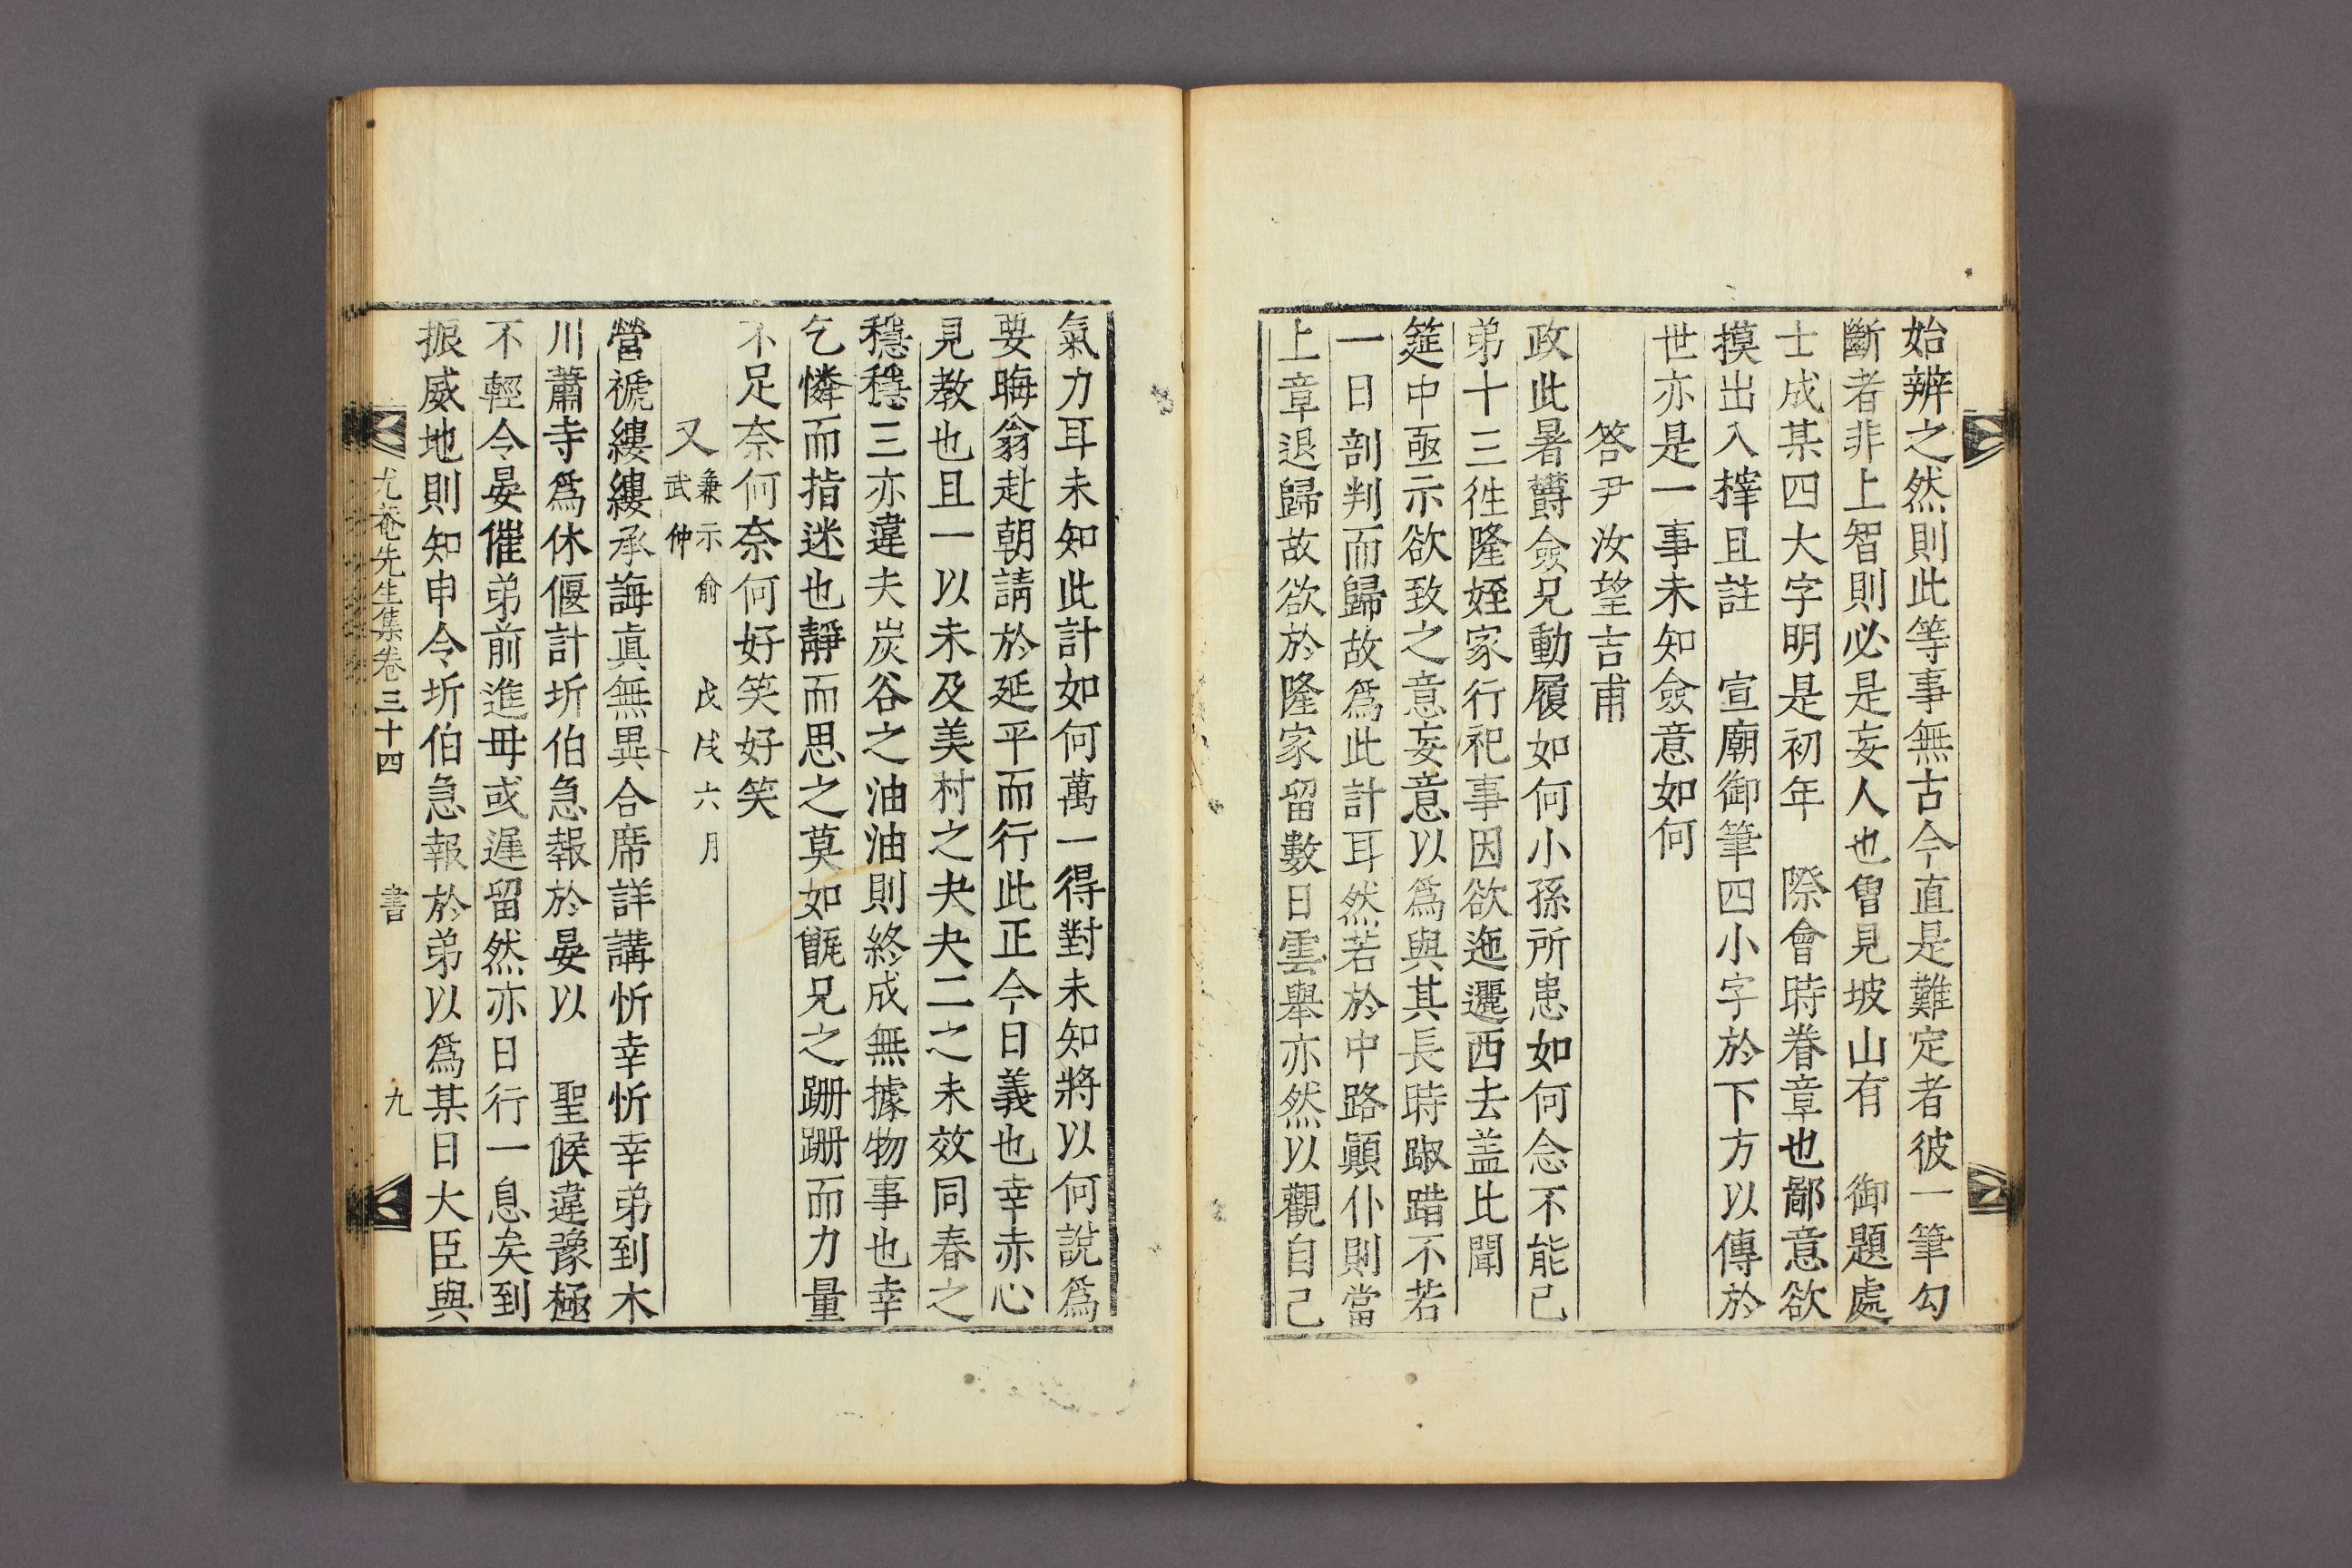 始辨之然則此等事無古今直是難定者彼一筆勾
斷者非上智則必是妄人也曾見坡山有　御題處
士成某四大字明是初年　際會時眷章也鄙意欲
摸出入榟且註　宣廟御筆四小字於下方以傳於
世亦是一事未知僉意如何
答尹汝望吉甫
政此暑欝僉兄動履如何小孫所患如何念不能已
弟十三徃隆姪家行祀事因欲迤邐西去盖比聞
筵中亟示欲致之意妄意以爲與其長時踧踖不若
一日剖判而歸故爲此計耳然若於中路顚仆則當
上章退歸故欲於隆家留數日雲舉亦然以觀自己
氣力耳未知此計如何萬一得對未知將以何說爲
要晦翁赴朝請於延平而行此正今日義也幸赤心
見教也且一以未及美村之夬夬二之未效同春之
穩穩三亦違夫炭谷之油油則終成無據物事也幸
乞憐而指迷也靜而思之莫如翫兄之跚跚而力量
不足奈何奈何好笑好笑
又兼示俞武仲　戊戌六月
營褫縷縷承誨眞無異合席詳講忻幸忻幸弟到木
川蕭寺爲休偃計圻伯急報於晏以　聖候違豫極
不輕令晏催弟前進毋或遲留然亦日行一息矣到
振威地則知申令圻伯急報於弟以爲某日大臣與
尤菴先生集卷三十四　書　九